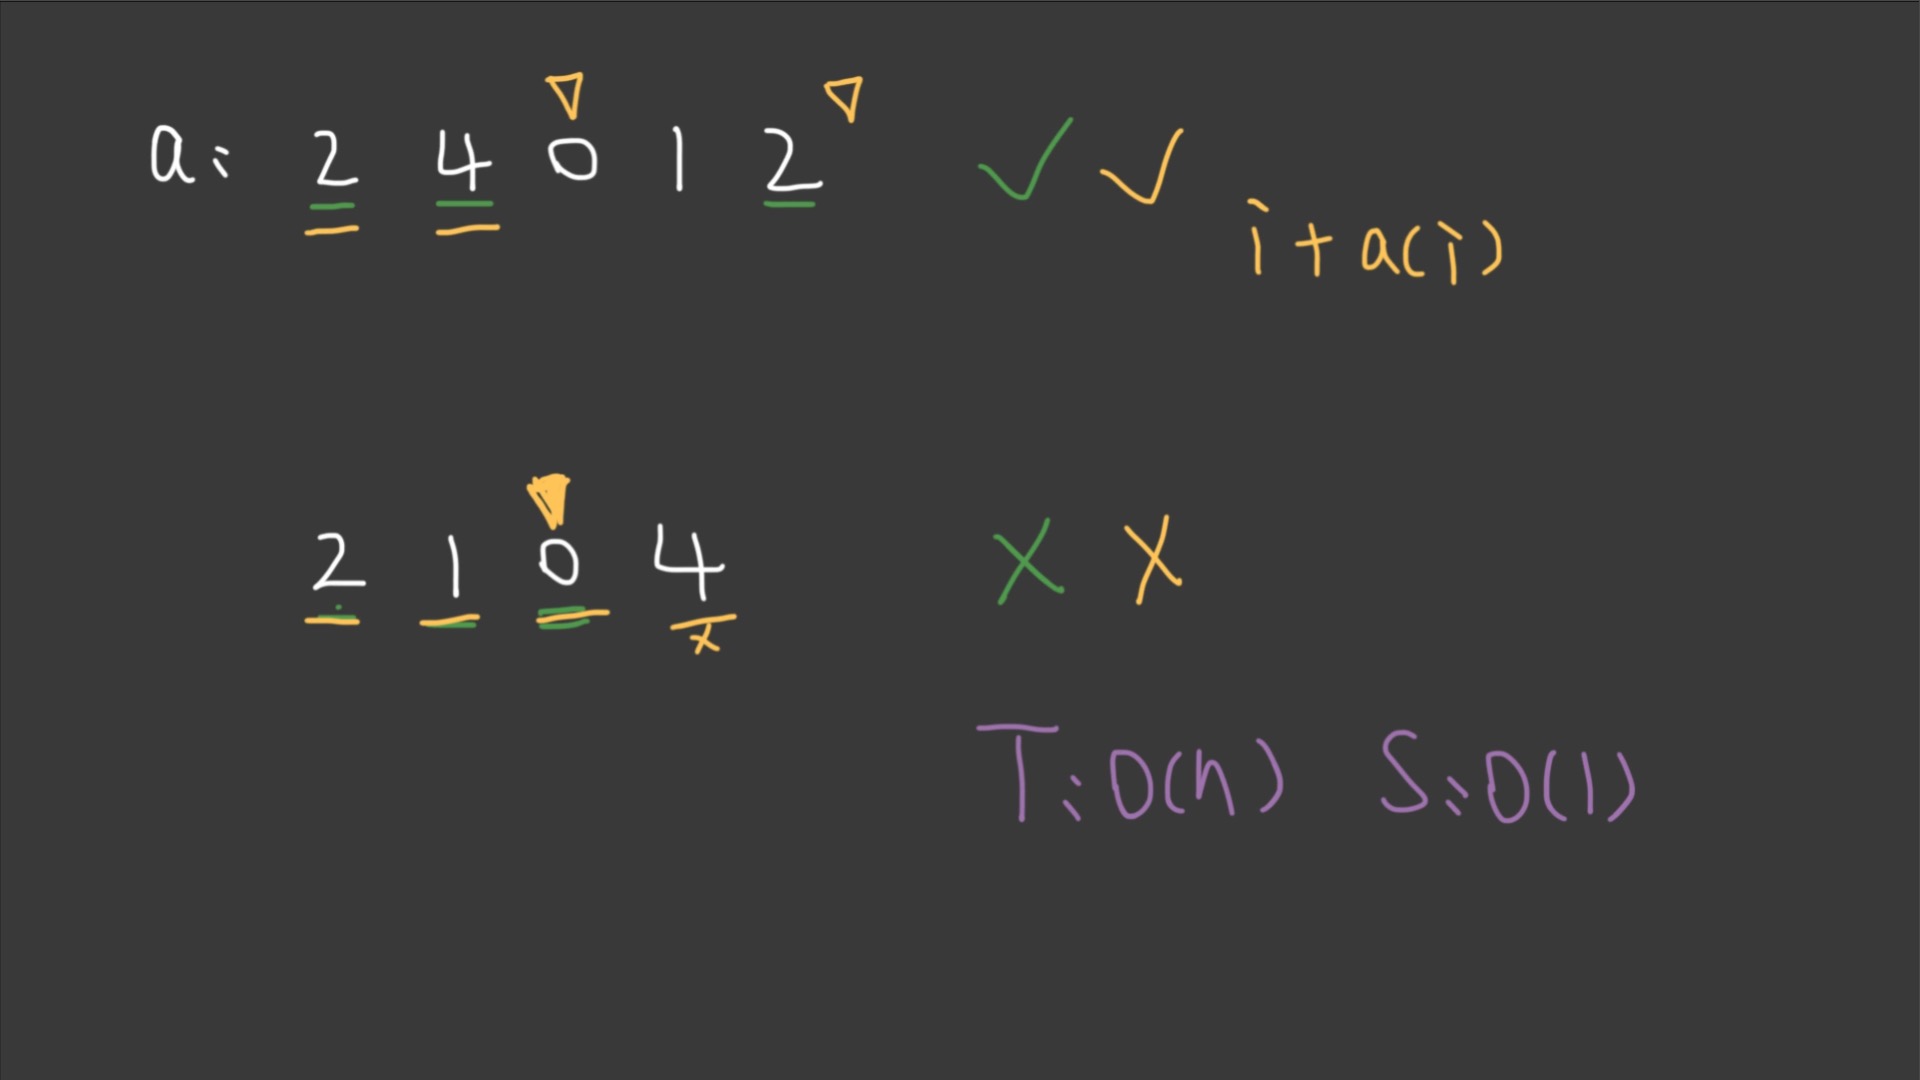 a: 2 4 0 1 2
i + a(i)
2 1 0 4
T: O(n) S: O(1)